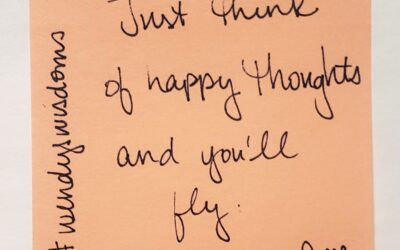 Just think
of happy thoughts
and you'll
fly.
#wendyswisdoms